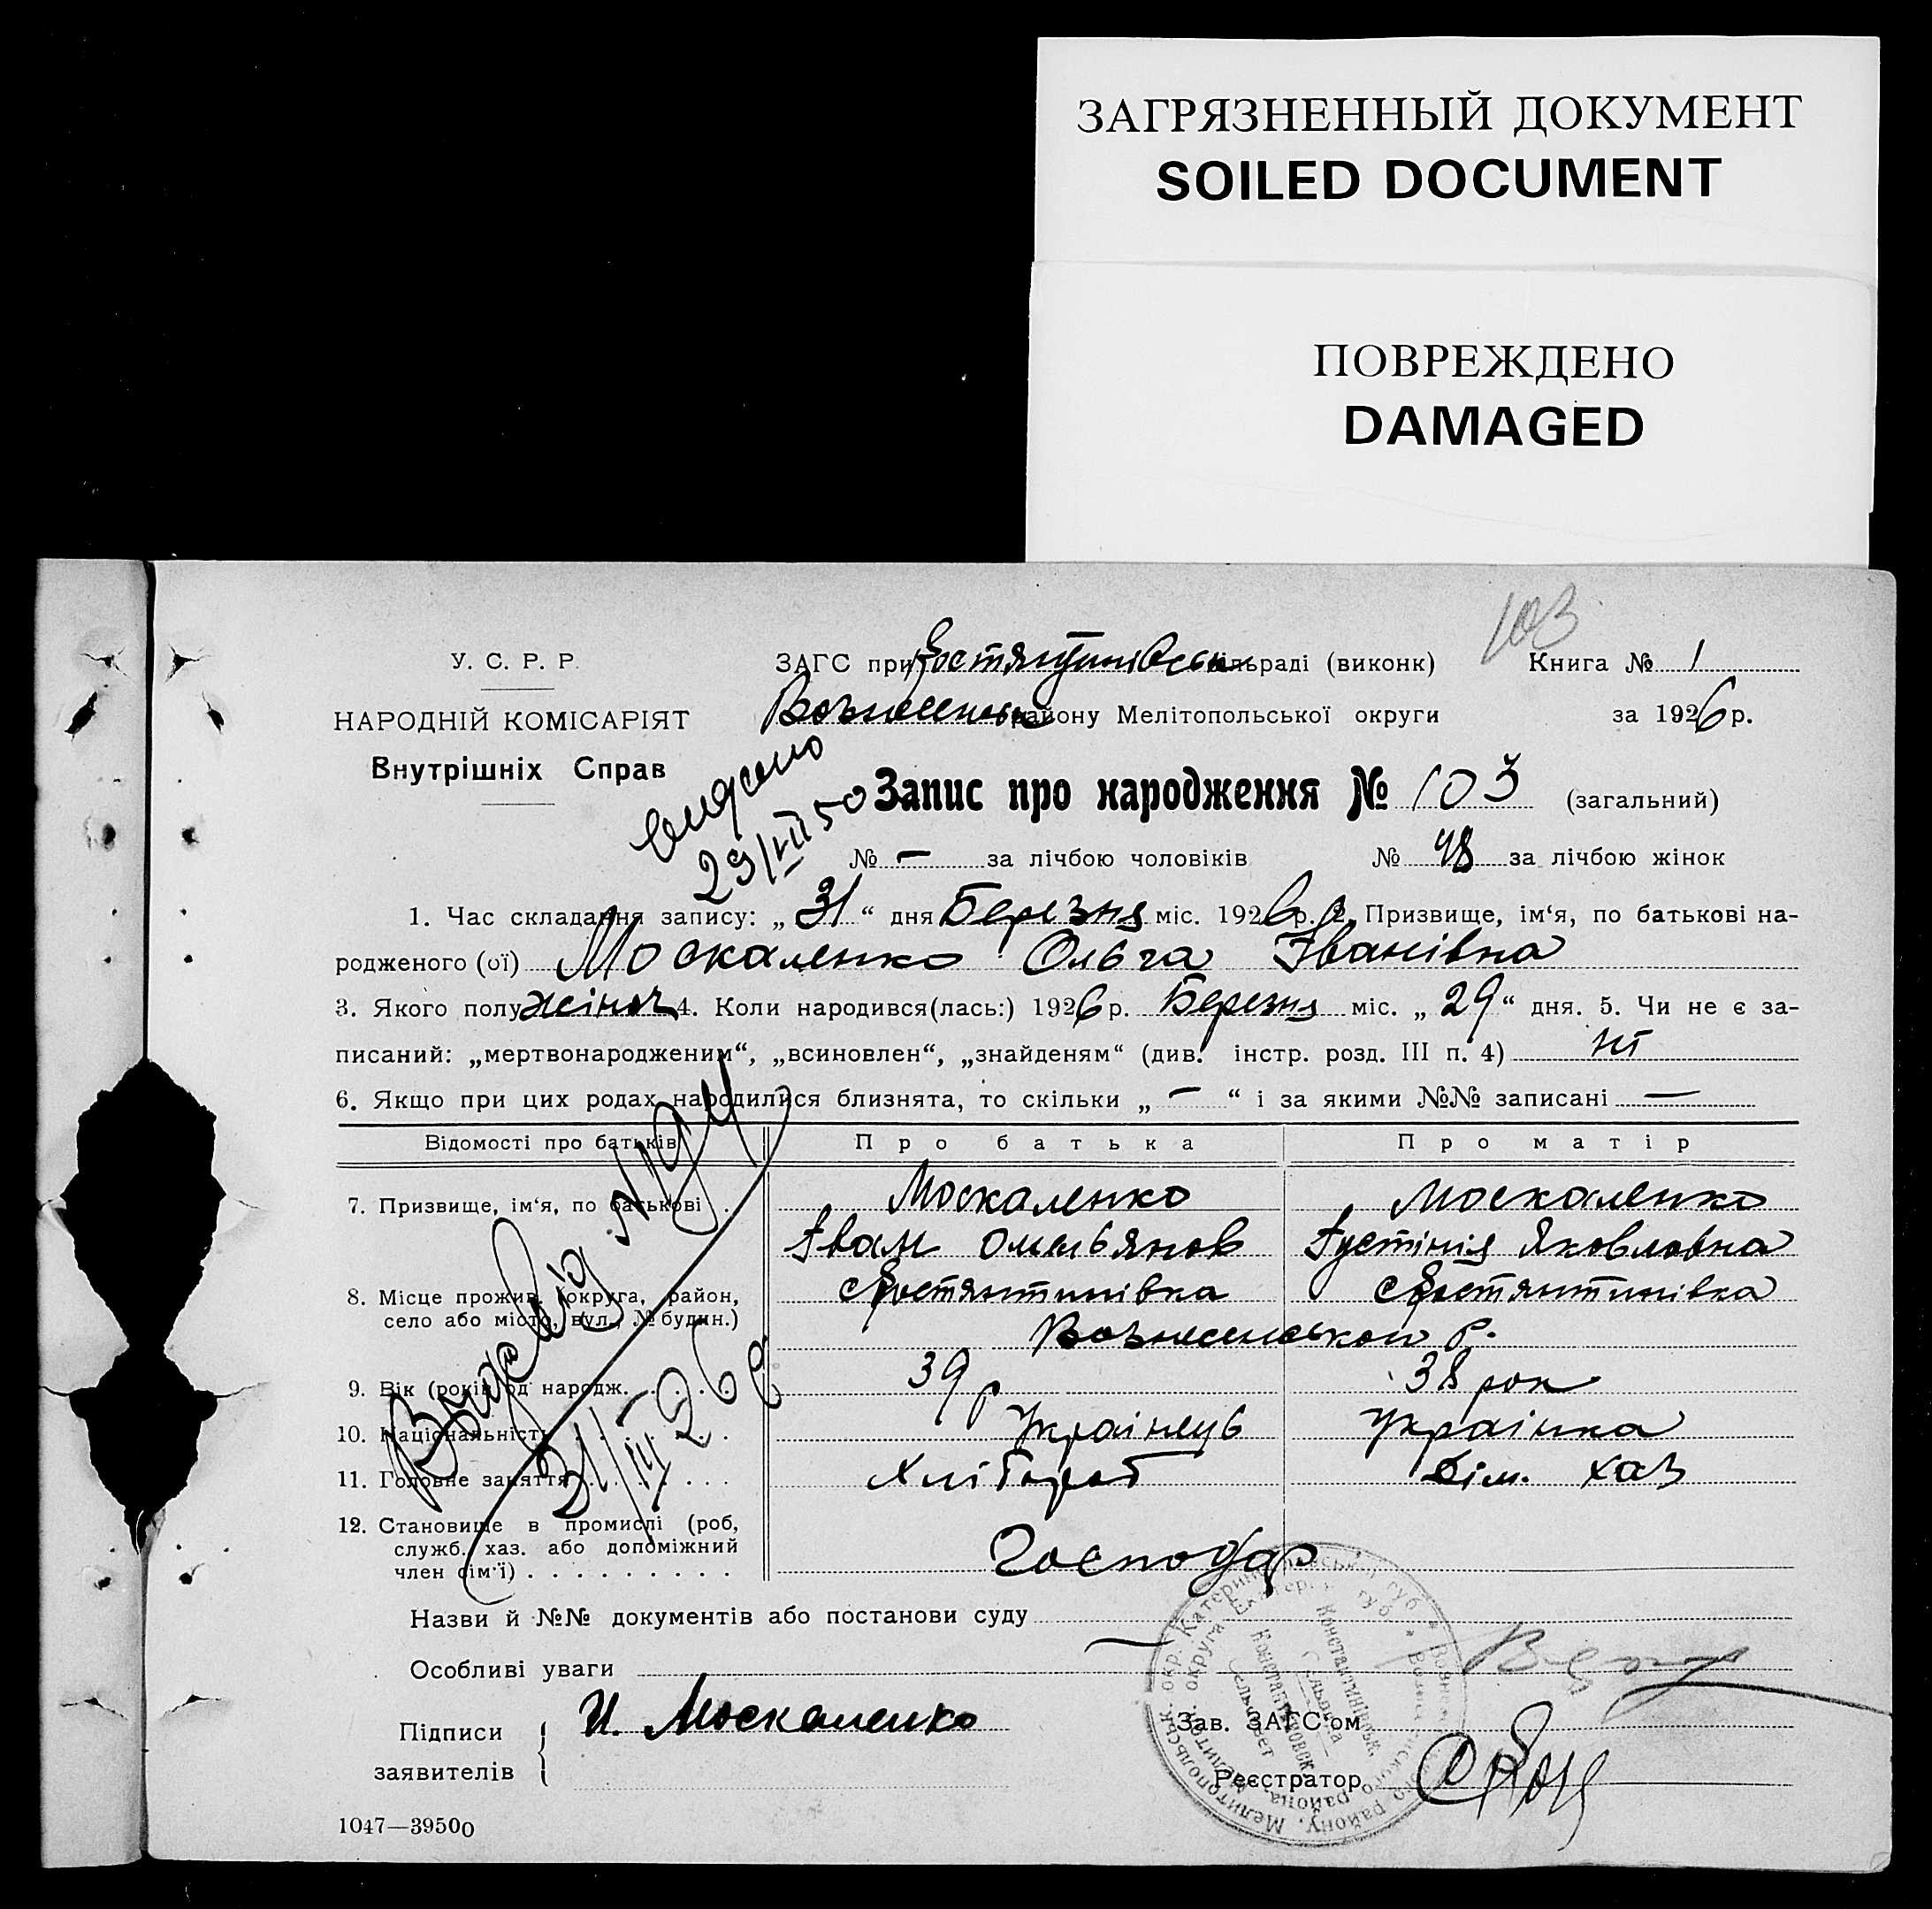 ЗАГРЯЗНЕННЫЙ ДОКУМЕНТ
SOILED DOCUMENT
ПОВРЕЖДЕНО
DAMAGED
103
У. С. Р. Р.
НАРОДНІЙ КОМІСАРІЯТ
Внутрішніх Справ
ЗАГС при Костянтинівськ сільраді (виконк) Книга № 1
Вознесенськ району Мелітопольської округи за 1926 р.
видано
29/VII 50
Запис про народження № 103 (загальний)
№ — за лічбою чоловіків № 48 за лічбою жінок
1. Час складання запису: „31“ дня Березня міс. 1926 р. 2. Призвище, ім‘я, по батькові на-
родженого (ої) Москаленко Ольга Іванівна
3. Якого полу жіноч 4. Коли народився(лась:) 1926 р. Березня міс. „29“ дня. 5. Чи не є за-
писаний: „мертвонародженим“, „всиновлен“, „знайденям“ (див. інстр. розд. III п. 4) ні
6. Якщо при цих родах народилися близнята, то скільки „—“ і за якими №№ записані —
Відомості про батьків Про батька Про матір
7. Призвище, ім‘я, по батькові . Москаленко Москаленко
Іван Омельянов Густінія Яковловна
8. Місце прожив. (округа, район, с Костянтинівка с Костянтинівка
село або місто, вул., № будин.)
Вознесенськои р.
9. Вік (років од народж. 39 р 38 рок
10. Національність Українець Українка
11. Головне заняття Хлібороб дім. хаз
12. Становище в промислі (роб,
служб. хаз. або допоміжний
член сім‘ї) Господар
31/III 26 р
Назви й №№ документів або постанови суду
Особливі уваги —
Підписи
заявителів
И. Москаленко
Зав. ЗАГС‘ом
Реєстратор
1047—39500